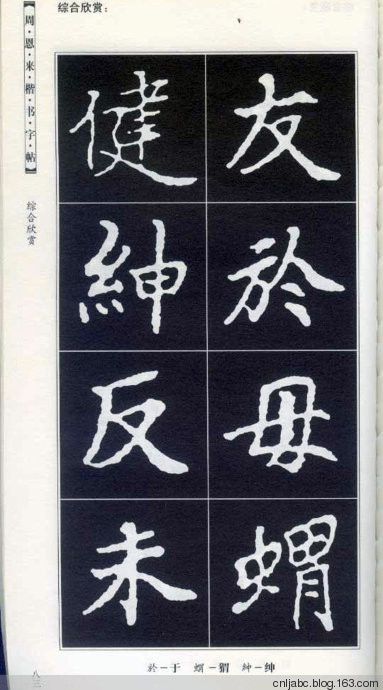 综合欣赏：
友
於
毋
蝟
健
紳
反
未
【周·恩·来·楷·书·字·帖】
综合欣赏
於－于 蝟－猬 紳－绅
cnljabc.blog.163.com